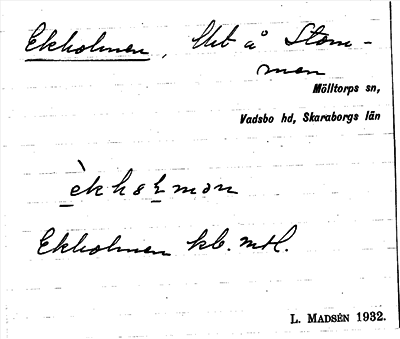 Ekholmen, Utä å Stom-
men
Mölltorps sn,
Vadsbo hd, Skaraborgs län
Ekholmen kb. mtl.
L. MADSÉN 1932.